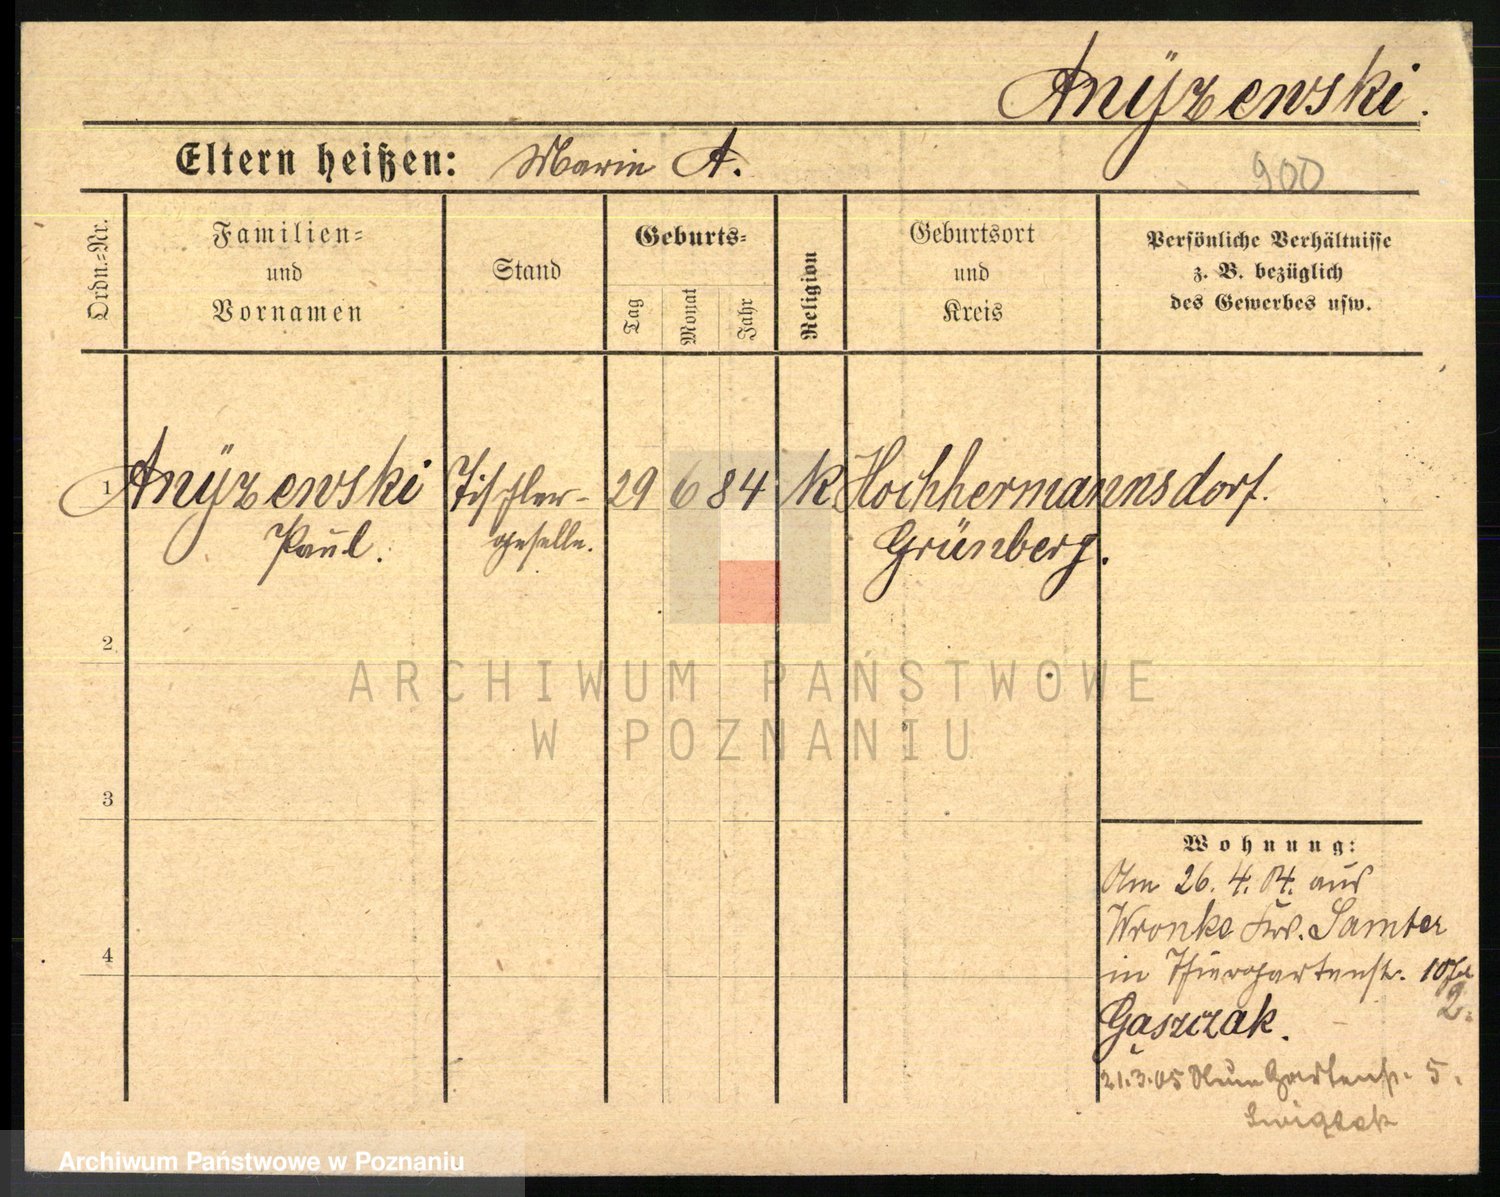 Anÿzewski.
Eltern heißen: Marie A.
900
Ordn.-Nr.
Familien-
und
Vornamen
Stand
Geburts-
Tag
Monat
Jahr
Religion
Geburtsort
und
Kreis
Persönliche Verhältnisse
z. B. bezüglich
des Gewerbes usw.
1 Anÿzewski Tischler- 29 6 84 K Hochhermannsdorf.
Paul. geselle. Grünberg.
2
ARCHIWUM PAŃSTWOWE
W POZNANIU
3
Wohnung:
Am 26. 4. 04. aus
Wronke Krs. Samter
in Thiergartenstr. 10
2.
Gaszczak.
21.3.05 Gartenstr. 5.
4
Archiwum Państwowe w Poznaniu